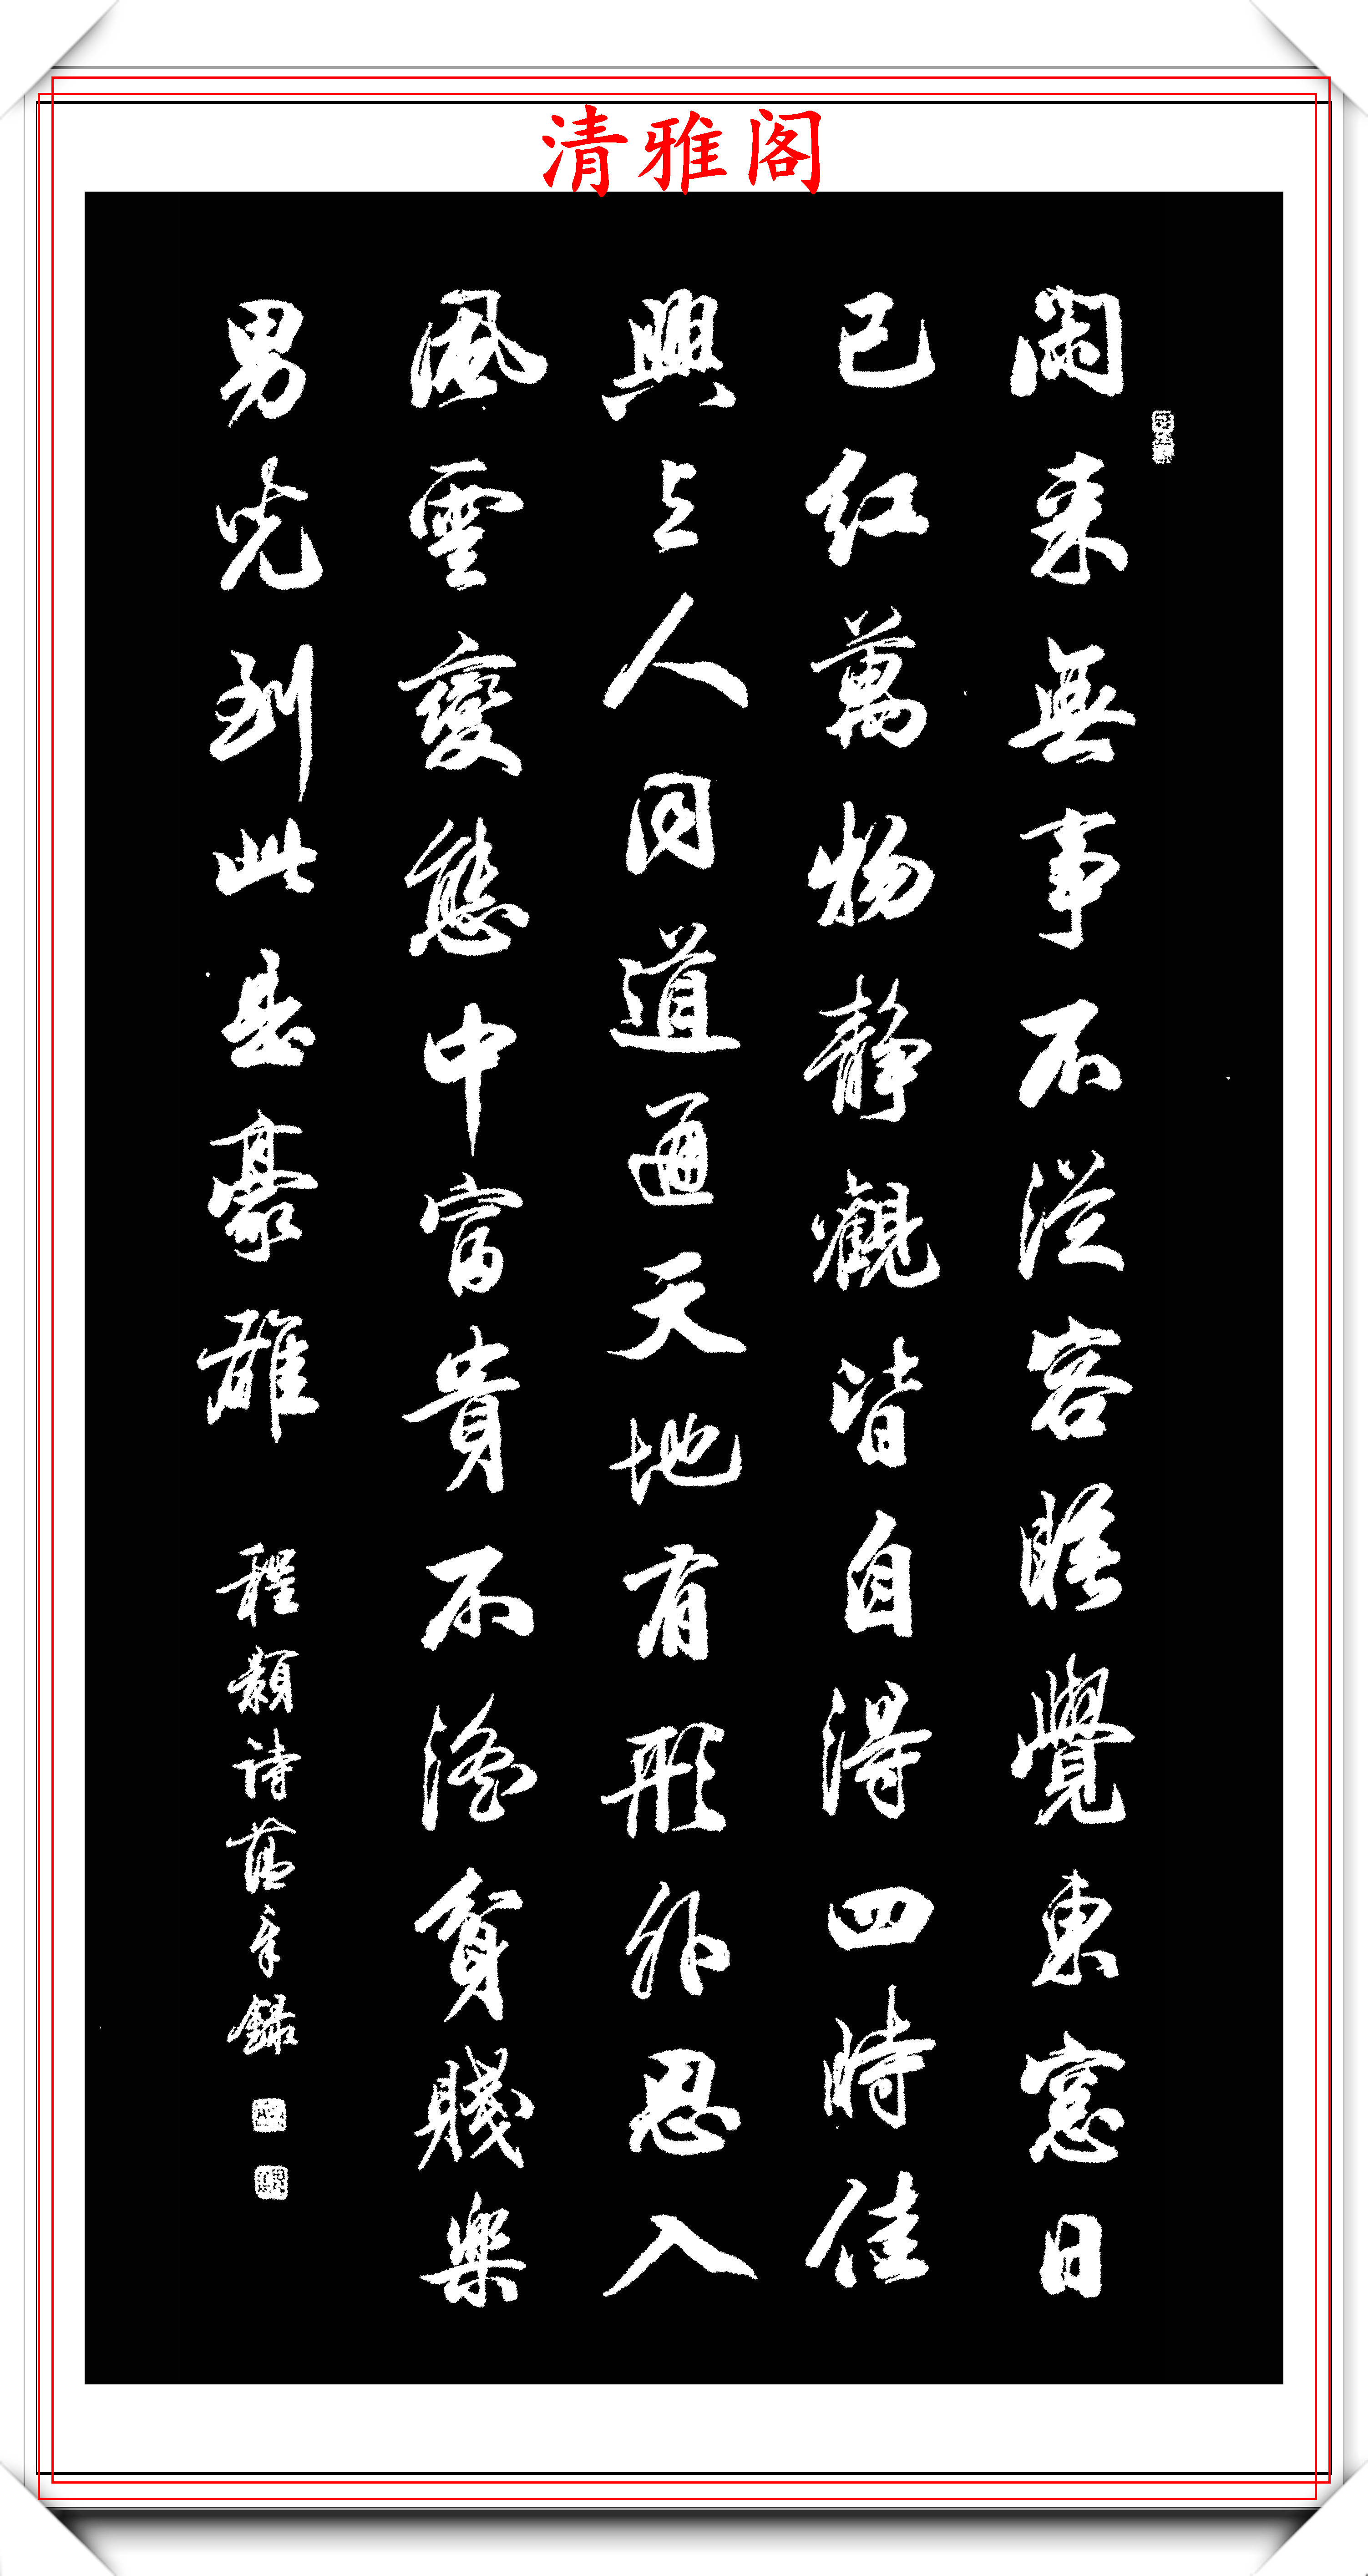 清雅阁
闲来無事不從容睡覺東窓日
已红萬物靜觀皆自得四時佳
興与人同道通天地有形外思入
風雲變態中富貴不淫貧賤樂
男児到此是豪雄
程顥诗
錄